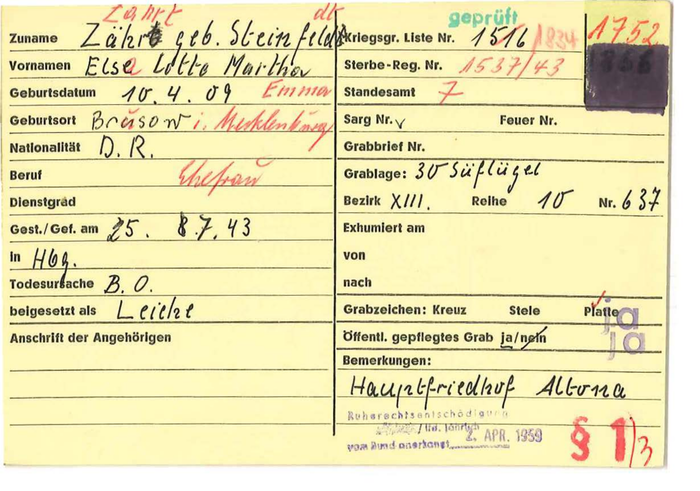 Zahrt dt
Zuname Zährt geb. Steinfeldt
Vornamen Elsa Lotte Martha
Geburtsdatum 10.4.09 Emma
Geburtsort Brüsow i. Mecklenburg
Nationalität D.R.
Beruf Ehefrau
Dienstgrad
Gest./Gef. am 25. 7. 43
in Hbg.
Todesursache B.O.
beigesetzt als Leiche
Anschrift der Angehörigen
geprüft
Kriegsgr. Liste Nr. 1516 / 1834 1752
Sterbe-Reg. Nr. 1537/43
Standesamt 7
Sarg Nr. Feuer Nr.
Grabbrief Nr.
Grablage: 30 Süflügel
Bezirk XIII. Reihe 10 Nr. 637
Exhumiert am
von
nach
Grabzeichen: Kreuz Stele Platte
ja
Öffentl. gepflegtes Grab ja/nein ja
Bemerkungen:
Hauptfriedhof Altona
Ruherechtsentschädigung
/ lfd. jährlich
vom Bund anerkannt 2. APR. 1959
§ 1/3